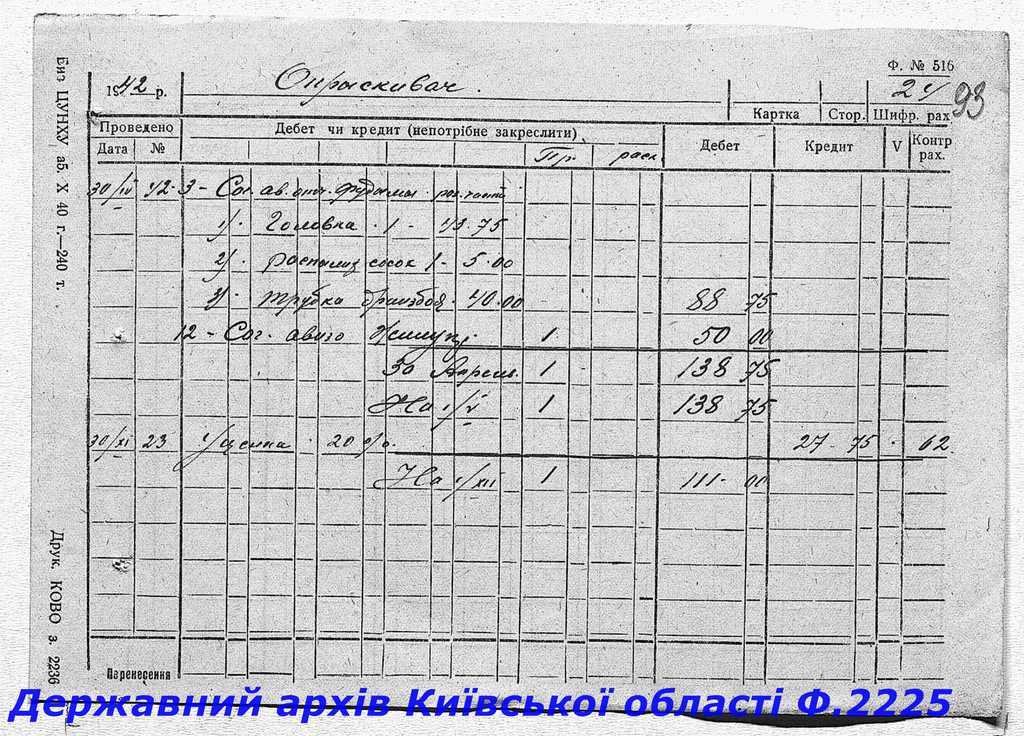 Ф. № 516
1942 р. Опрыскивач. 24 93
Картка Стор. Шифр. рах
Проведено Дебет чи кредит (непотрібне закреслити) Дебет Кредит V Контр рах.
Дата № Пр. расх.
30/IV 42-3 - Сог. ав. отч.
1). Головка . 1 - 43.75
2). сосок 1 - 5.00
3). трубка 40.00 88 75
12 - Сог. авизо 1 50 00
За Апрель. 1 138 75
На 1/V 1 138 75
30/XI 23 Уценка . 20 %. 27 - 75 . 62.
На 1/XII 1 111 - 00
Паренесення
Биз ЦУНХУ аб. Х 40 г.—240 т.
Друк. КОВО з. 2236
Державний архів Київської області Ф.2225